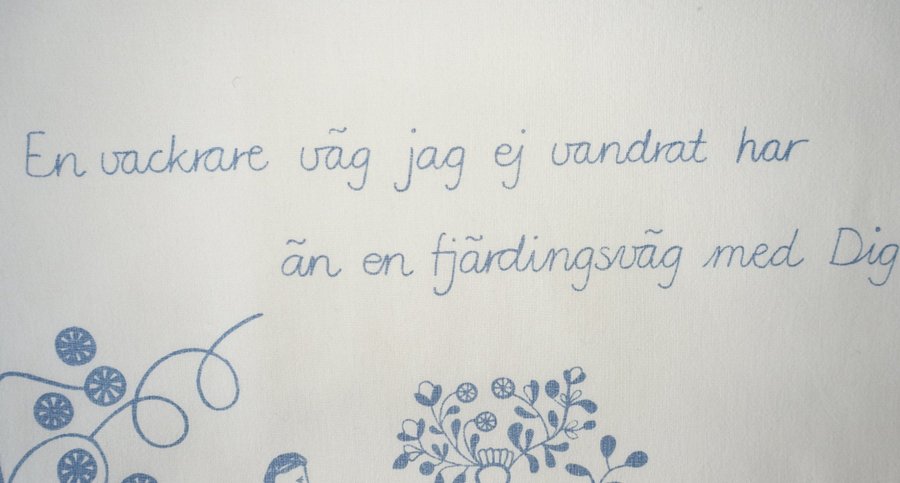 En vackrare väg jag ej vandrat har
än en fjärdingsväg med Dig